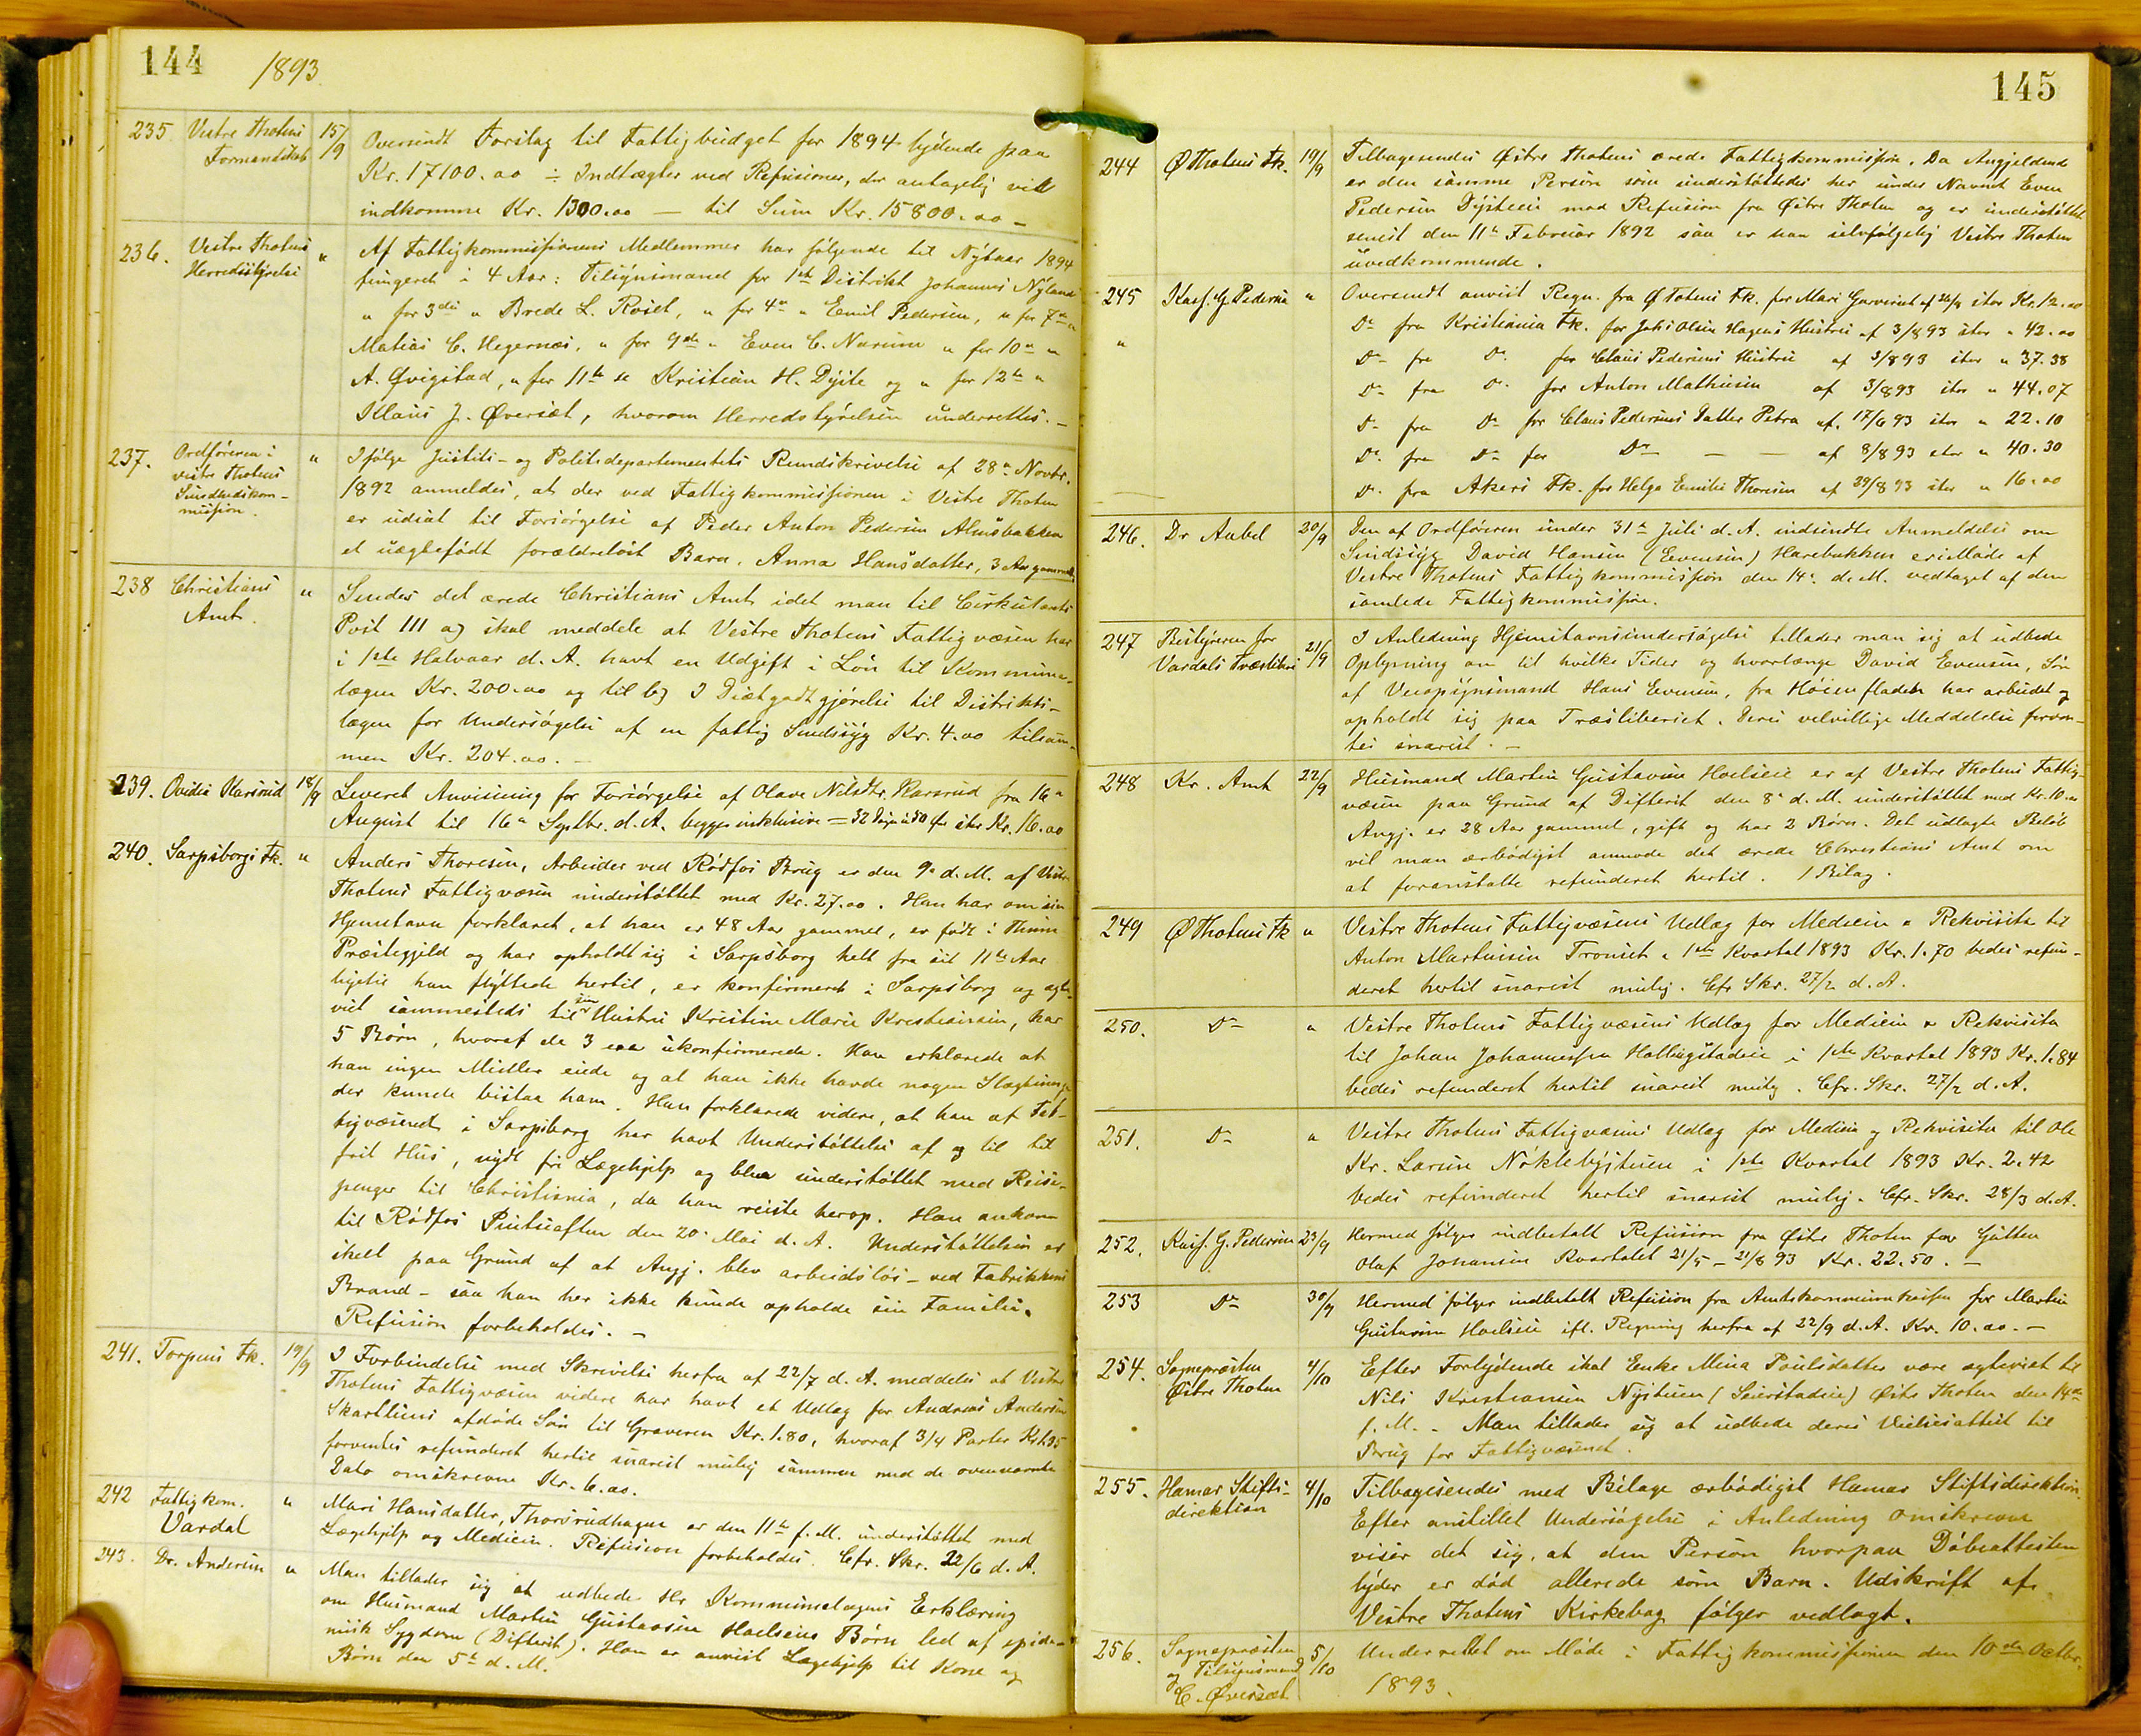 144 1893
235. Vestre Thotens Formandskab 15/9 Oversendt Forslag til Fattigbudget for 1894 lydende paa
Kr. 17100.00 ÷ Indtægter ved Refusioner, der antagelig vil
indkomme Kr. 1300.00 — til Sum Kr. 15800.00 —
236. Vestre Thotens Herredsstyrelse " Af Fattigkommissionens Medlemmer har følgende til Nytaar 1894
fungeret i 4 Aar: Tilsynsmand for 1ste Distrikt Johannes Nyland
" for 3die " Brede L. Roset, " for 4de " Emil Pedersen, " for 7de "
Matias C. Hegernæs, " for 9de " Even C. Narum " for 10de "
A. Qvigstad, " for 11te " Kristian H. Dyste og " for 12te "
Klaus J. Øversæt, hvorom Herredstyrelsen underrettes. —
237. Ordføreren i vestre Thotens Sundhedskommission. " Ifølge Justits- og Politidepartementets Rundskrivelse af 28de Novbr.
1892 anmeldes, at der ved Fattigkommissionen i Vestre Thoten
er udsat til Forsørgelse af Peder Anton Pedersen Almsbakken
et uægtefødt forældreløst Barn, Anna Hansdatter, 3 Aar gammel.
238 Christians Amt. " Sendes det ærede Christians Amt idet man til Cirkulærets
Post III a) skal meddele at Vestre Thotens Fattigvæsen har
i 1ste Halvaar d. A. havt en Udgift i Løn til Kommune-
lægen Kr. 200.00 og til b) I Diætgodtgjørelse til Distrikts-
lægen for Undersøgelse af en fattig Sindssyg Kr. 4.00 tilsam-
men Kr. 204.00. —
239. Ovidia Karsrud 18/9 Leveret Anvisning for Forsørgelse af Olave Nilsdtr. Karsrud fra 16de
August til 16de Septbr. d. A. begge inklusive = 32 Dage à 50 Øre stor Kr. 16.00
240. Sarpsborgs Fk. " Anders Thoresen, Arbeider ved Rødfos Brug er den 9de d. M. af Vestre
Thotens Fattigvæsen understøttet med Kr. 27.00. Han har om sin
Hjemstavn forklaret, at han er 48 Aar gammel, er født i
Præstegjeld og har opholdt sig i Sarpsborg helt fra sit 11te Aar
ligetil han flyttede hertil, er konfirmeret i Sarpsborg og ægte-
viet sammesteds til sin Hustru Kristine Marie Kristiansen, har
5 Børn, hvoraf de 3 er ukonfirmerede. Han erklærede at
han ingen Midler eiede og at han ikke havde nogen Slægtninge
der kunde bistaa ham. Han forklarede videre, at han af Fat-
tigvæsenet i Sarpsborg har havt Understøttelse af og til til
frit Hus, nydt fri Lægehjelp og blev understøttet med Reise-
penger til Christiania, da han reiste herop. Han ankom
til Rødfos Pintseaften den 20. Mai d. A. Understøttelsen er
skeet paa Grund af at Angj. blev arbeidsløs — ved Fabrikkens
Brand — saa han her ikke kunde opholde sin Familie.
Refusion forbeholdes. —
241. Torpens Fk. 19/9 I Forbindelse med Skrivelse herfra af 22/7 d. A. meddeles at Vestre
Thotens Fattigvæsen videre har havt et Udlæg for Andreas Andersen
Skartliens afdøde Søn til Graveren Kr. 1.80, hvoraf 3/4 Parter Kr. 1.35
forventes refunderet hertil snarest mulig sammen med de ovennævnte
Dato omskrevne Kr. 6.00.
242 Fattigkom. Vardal " Mari Hansdatter, Thorsrudhagen er den 11te f. M. understøttet med
Lægehjelp og Medicin. Refusion forbeholdes. Cfr. Skr. 22/6 d. A.
243. Dr. Andersen " Man tillader sig at udbede Hr Kommunelægens Erklæring
om Husmand Martin Gustavsen Hoelseies Børn led af epide-
misk Sygdom (Difterit). Han er anvist Lægehjelp til Kone og
Børn den 5te d. M.
145
244 Ø Thotens Fk. 19/9 Tilbagesendes Østre Thotens ærede Fattigkommission. Da Angjeldende
er den samme Person som understøttedes her under Navnet Even
Pedersen Dysteeie mod Refusion fra Østre Thoten og er understøttet
senest den 11te Februar 1892 saa er han selvfølgelig Vestre Thoten
uvedkommende.
245 Kass. G. Pedersen " Oversendt anvist Regn. fra Ø Totens Fk. for Mari Garveriet af 26/8 stor Kr. 12.00
" Do fra Kristiania Fk. for Johs Olsen Hagens Hustru af 3/8 93 stor " 42.00
Do fra Do for Claus Pedersens Hustru af 3/8 93 stor " 37.38
Do fra Do for Anton Mathiesen af 3/8 93 stor " 44.07
Do fra Do for Claus Pedersens Datter Petra af 17/6 93 stor " 22.10
Do fra Do for Do — — af 8/8 93 stor " 40.30
Do fra Akers Fk. for Helga Emilie Thoresen af 29/8 93 stor " 16.00
246. Dr Aubel 20/9 Den af Ordføreren under 31te Juli d. A. indsendte Anmeldelse om
Sindssyg David Hansen (Evensen) Harebakken er i Møde af
Vestre Thotens Fattigkommission den 14de d. M. vedtaget af den
samlede Fattigkommission.
247 Bestyreren for Vardals Træsliberi 21/9 I Anledning Hjemstavnsundersøgelse tillader man sig at udbede
Oplysning om til hvilke Tider og hvorlænge David Evensen, Søn
af Veiopsynsmand Hans Evensen, fra har arbeidet og
opholdt sig paa Træsliberiet. Deres velvillige Meddelelse forven-
tes snarest. —
248 Kr. Amt 22/9 Husmand Martin Gustavsen Hoelseie er af Vestre Thotens Fattig-
væsen paa Grund af Difterit den 8de d. M. understøttet med Kr. 10.00
Angj. er 28 Aar gammel, gift og har 2 Børn. Det udlagte Beløb
vil man ærbødigst anmode det ærede Christians Amt om
at foranstalte refunderet hertil. 1 Bilag.
249 Ø Thotens Fk " Vestre Thotens Fattigvæsens Udlæg for Medicin & Rekvisita til
Anton Martinsen i 1ste Kvartal 1893 Kr. 1.70 bedes refun-
deret hertil snarest mulig. Cfr Skr. 27/2 d. A.
250. Do " Vestre Thotens Fattigvæsens Udlæg for Medicin & Rekvisita
til Johan Johannessen Hallingstadeie i 1ste Kvartal 1893 Kr. 1.84
bedes refunderet hertil snarest mulig. Cfr. Skr. 27/2 d. A.
251. Do " Vestre Thotens Fattigvæsens Udlæg for Medicin og Rekvisita til Ole
Kr. Larsen Nøklebystuen i 1ste Kvartal 1893 Kr. 2.42
bedes refunderet hertil snarest mulig. Cfr. Skr. 28/3 d. A.
252. Kass. G. Pedersen 23/9 Hermed følger indbetalt Refusion fra Østre Thoten for Gutten
Olaf Johansen Kvartalet 21/5 — 21/8 93 Kr. 22.50. —
253 Do 30/9 Hermed følger indbetalt Refusion fra Amtskommunekassen for Martin
Gustavsen Hoelseie ifl. Regning herfra af 22/9 d. A. Kr. 10.00. —
254. Sognepræsten Østre Thoten 4/10 Efter Forlydende skal Enke Mina Paulsdatter være ægteviet til
Nils Kristiansen Nystuen () Østre Thoten den 14de
f. M. — Man tillader sig at udbede deres Vielsesattest til
Brug for Fattigvæsenet.
255. Hamar Stiftsdirektion 4/10 Tilbagesendes med Bilage ærbødigst Hamar Stiftsdirektion.
Efter anstillet Undersøgelse i Anledning omskrevne
viser det sig, at den Person hvorpaa Døbeattesten
lyder er død allerede som Barn. Udskrift af
Vestre Thotens Kirkebog følger vedlagt.
256. Sognepræsten og Tilsynsmand C. Øversæt 5/10 Underrettet om Møde i Fattigkommissionen den 10de Octbr.
1893.